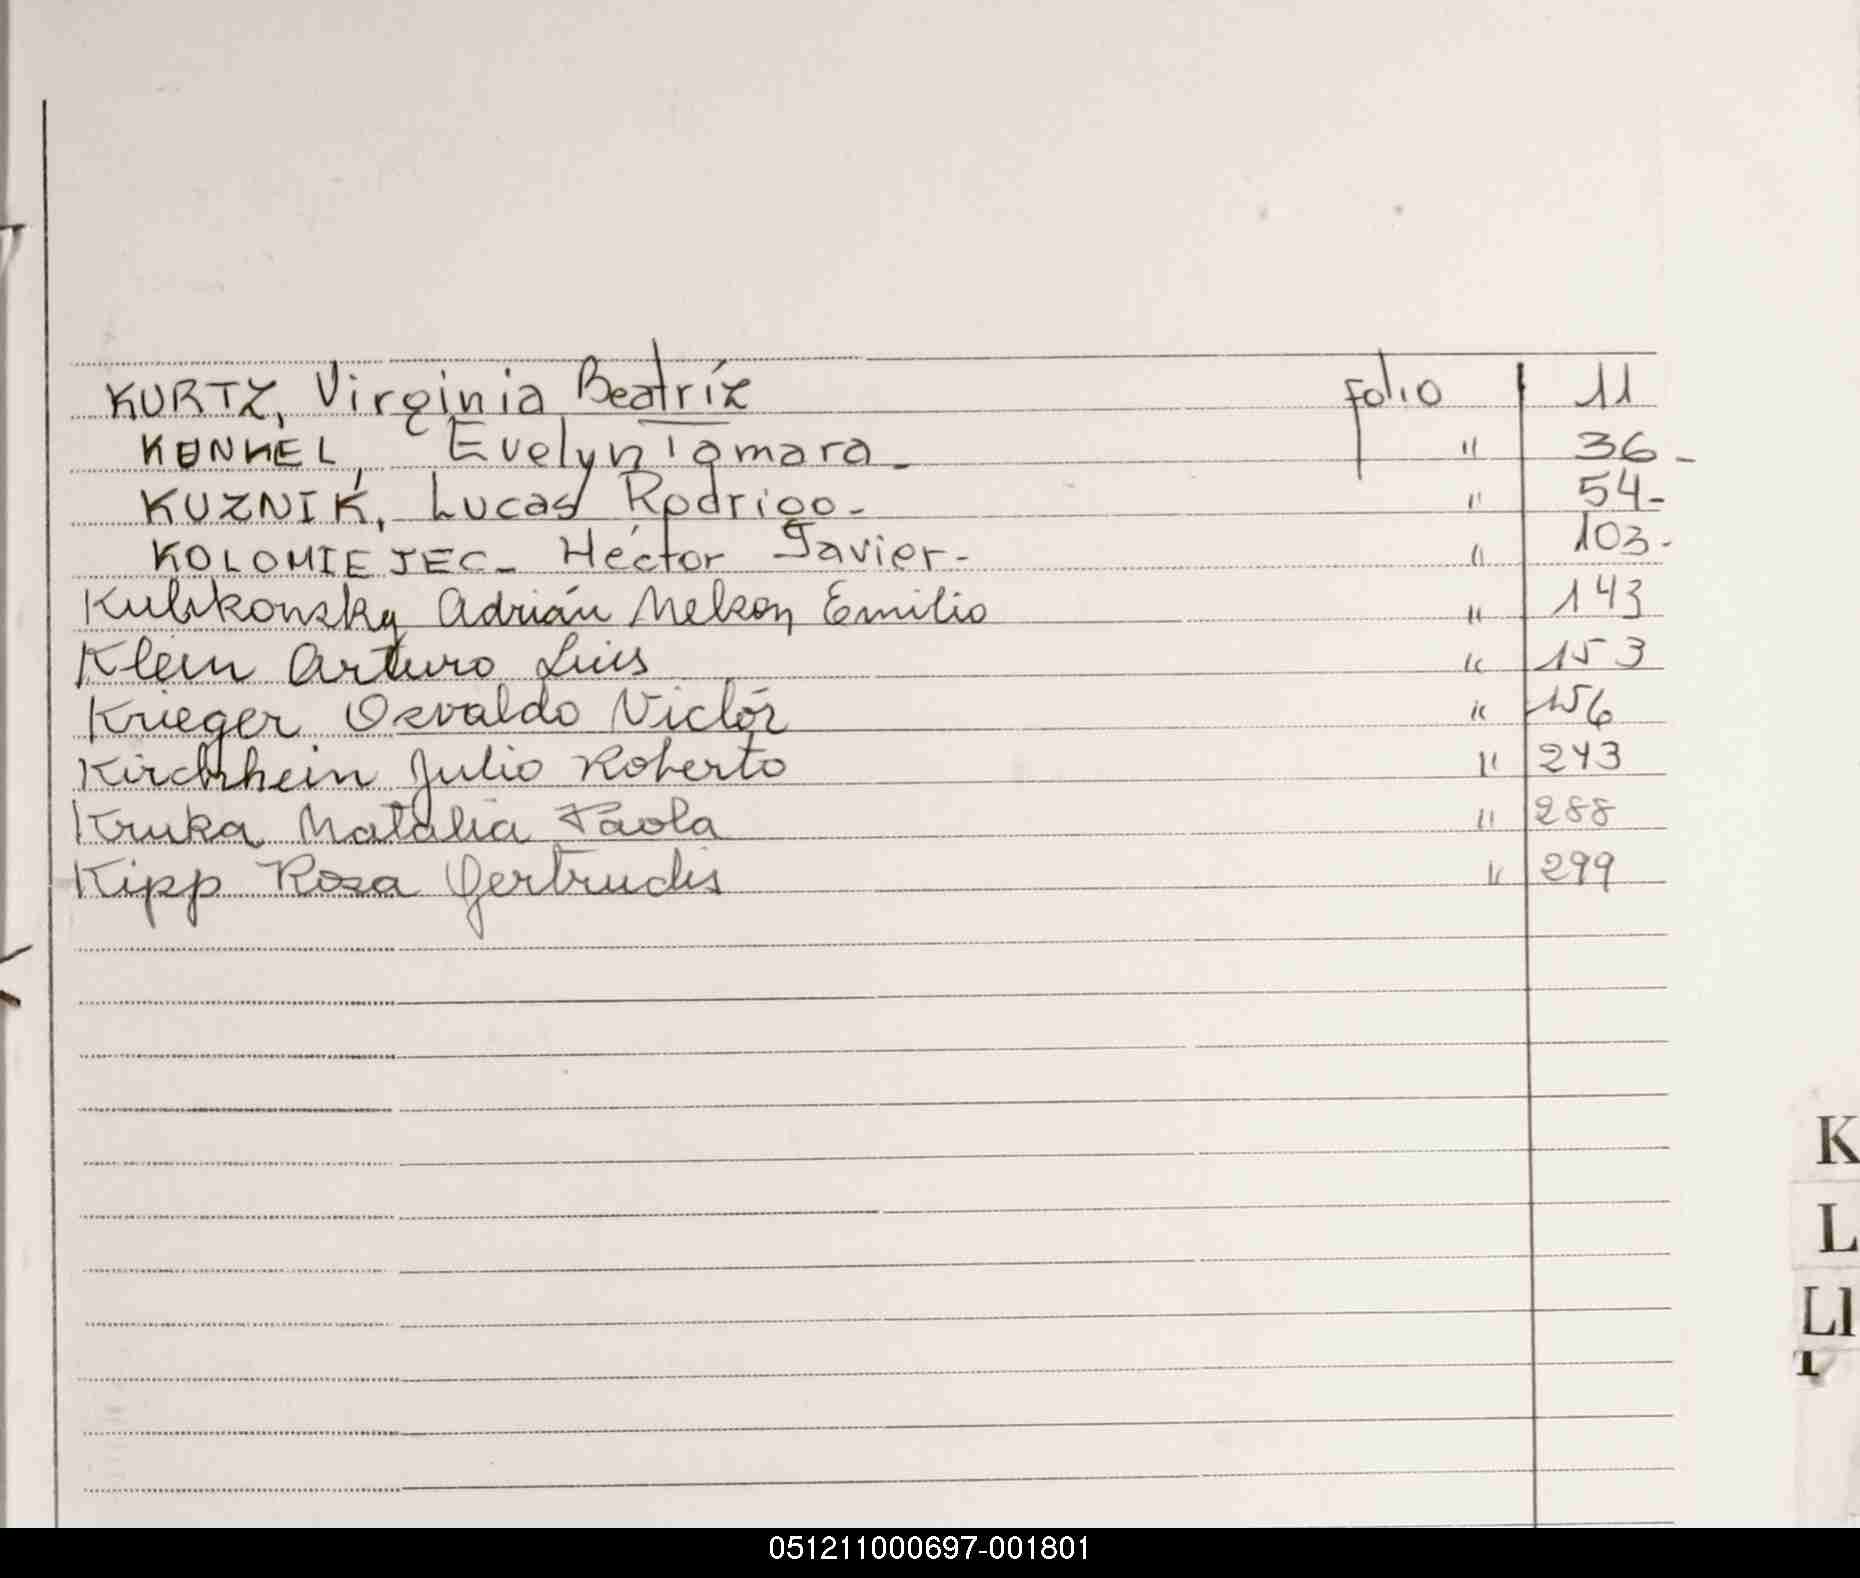 KURTZ, Virginia Beatríz folio 11
KUNKEL, Evelyn Tamara - " 36 -
KUZNIK, Lucas Rodrigo - " 54 -
KOLOMIEJEC - Héctor Javier - " 103 -
Adrián Nelson Emilio " 143
Klein Arturo Luis " 153
Krieger Osvaldo Victór " 156
Kirchhein Julio Roberto " 243
Kruka Natalia Paola " 288
Kipp Rosa Gertrudis " 299
K
L
Ll
051211000697-001801